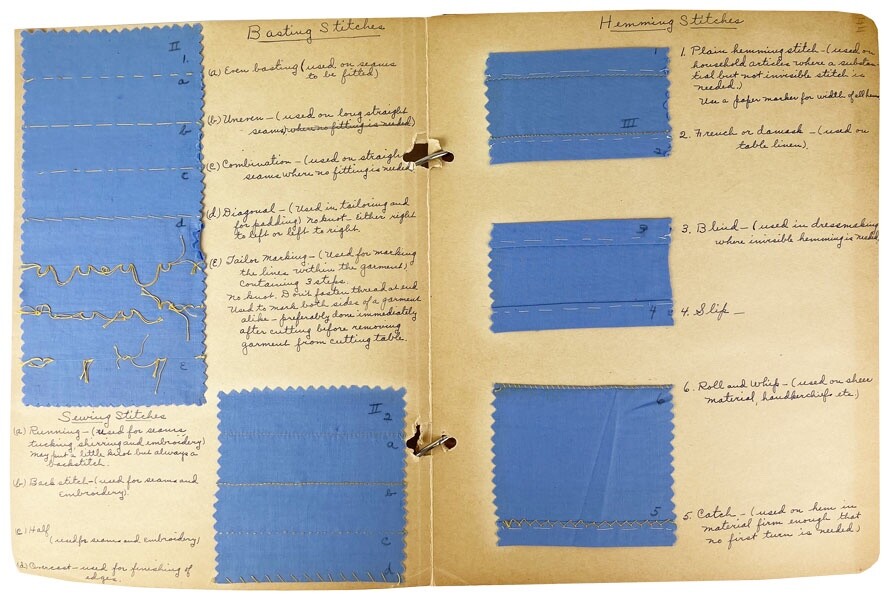 Basting Stitches
II
1.
a
b
c
d
E
(a) Even basting (used on seams
to be fitted)
(b) Uneven - (used on long straight
seams where no fitting is needed)
(c) Combination - (used on straight
seams where no fitting is needed
(d) Diagonal - (Used in tailoring and
for padding) no knot - either right
to left or left to right.
(E) Tailor marking - (Used for marking
the lines within the garment)
containing 3 steps.
no knot. Don't fasten thread at end
Used to mark both sides of a garment
alike - preferably done immediately
after cutting before removing
garment from cutting table.
Sewing Stitches
(a) Running - (used for seams
tucking, shirring and embroidery)
may put a little knot but always a
backstitch.
(b) Back stitch - (used for seams and
embroidery)
(c) Half
(used for seams and embroidery)
(d) Overcast - used for finishing of
edges.
II 2
a
b
c
d
Hemming Stitches
1
III
2
1. Plain hemming stitch - (used on
household articles where a substan-
tial but not invisible stitch is
needed.)
Use a paper marker for width of all hems
2. French or damask - (used on
table linen).
3
4
3. Blind - (used in dressmaking
where invisible hemming is needed
4. Slip -
6
5
6. Roll and Whip - (used on sheer
material, handkerchiefs etc.)
5. Catch - (used on hem in
material firm enough that
no first turn is needed)